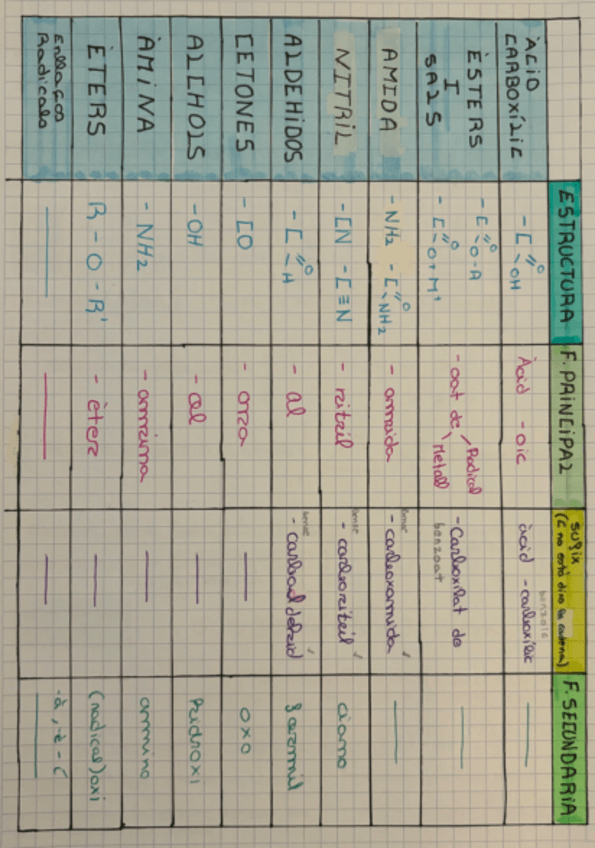 ESTRUCTURA
F. PRINCIPAL
sufix
(C no està dins la cadena)
F. SECUNDARIA
ÀCID
CARBOXÍLIC
-C=O
-OH
Àcid -oic
àcid -carboxílic
benzoic
ÈSTERS
I
SALS
-C=O
-O-R
-C=O
-O+M+
-oat de
Radical
Metall
-Carboxilat de
benzoat
AMIDA
-NH2
-C=O
NH2
-amida
-carboxamida
NITRIL
-CN -C≡N
-nitril
-carbonitril
ciano
ALDEHIDOS
-C=O
-H
-al
-carbaldehid
formil
CETONES
-CO
-ona
oxo
ALCHOLS
-OH
-ol
hidroxi
ÀMINA
-NH2
-amina
ammino
ÈTERS
R-O-R'
-èter
(radical)oxi
Enllaços
Radicals